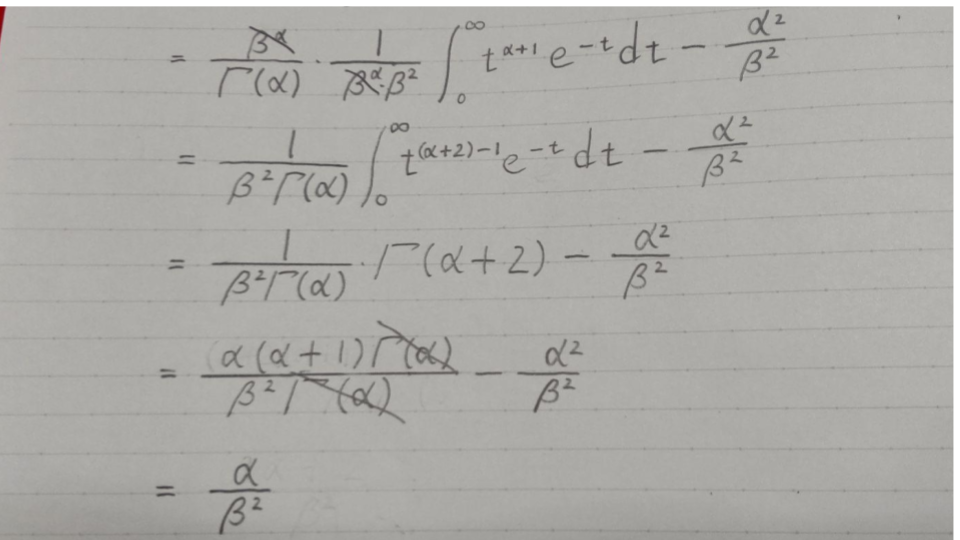 = β^α/Γ(α) · 1/(β^α·β²) ∫₀^∞ t^(α+1) e^(-t) dt − α²/β²
= 1/(β²Γ(α)) ∫₀^∞ t^((α+2)-1) e^(-t) dt − α²/β²
= 1/(β²Γ(α)) · Γ(α+2) − α²/β²
= α(α+1)Γ(α)/(β²Γ(α)) − α²/β²
= α/β²